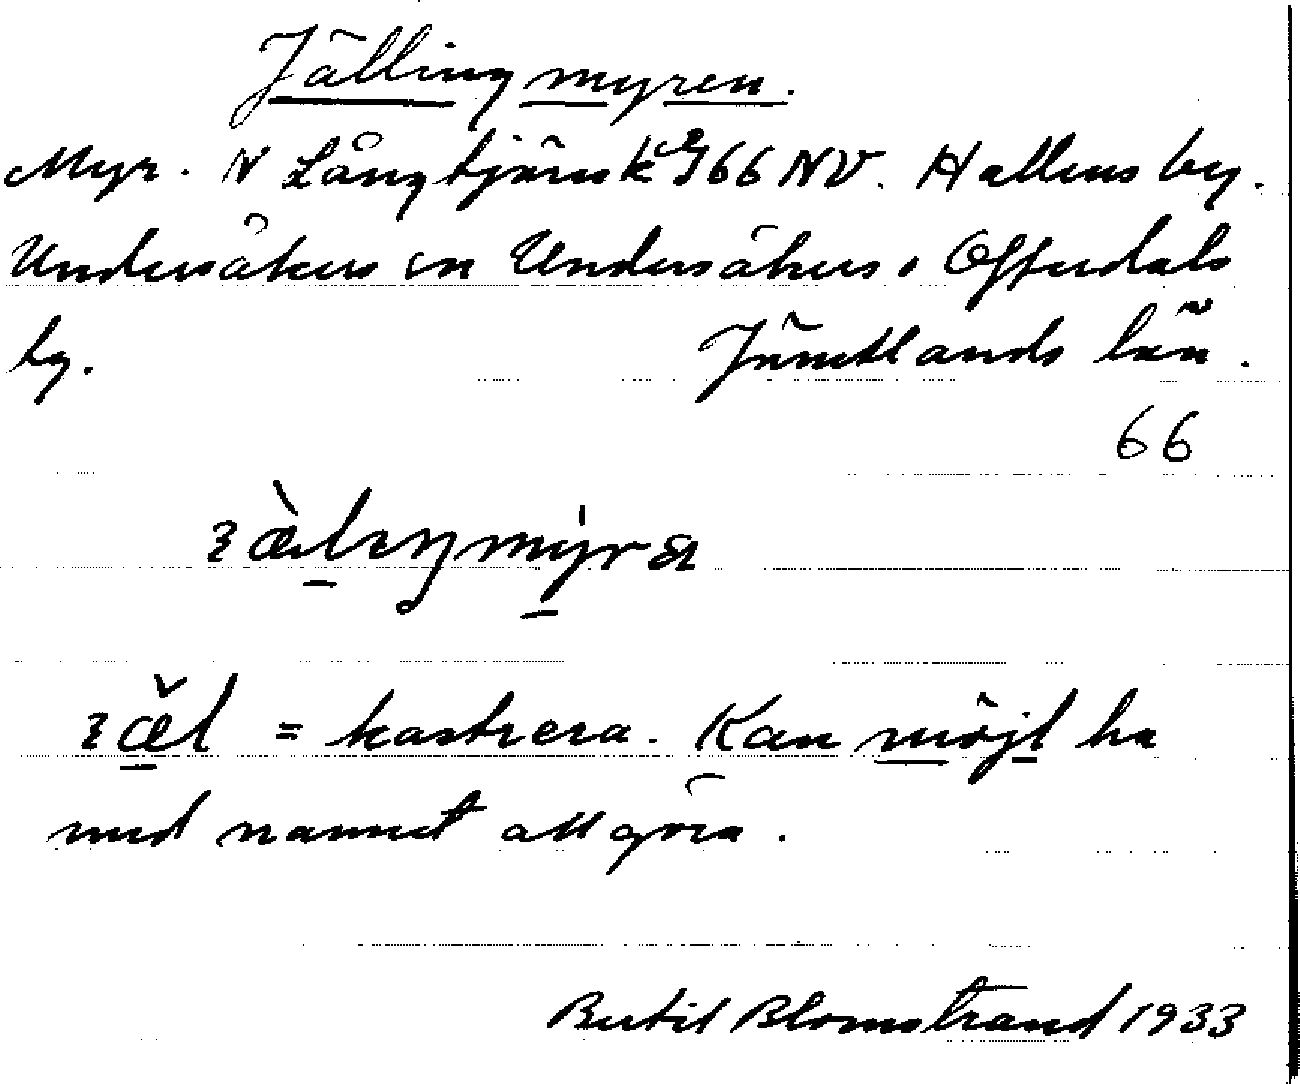 Jällingmyren.
Myr. N Långtjärn k 66 NV. Hallens by.
Undersåkers sn Undersåkers o Offerdals
tg. Jämtlands län.
66
= kastrera. Kan möjl ha
med namnet att göra.
Bertil Blomstrand 1933